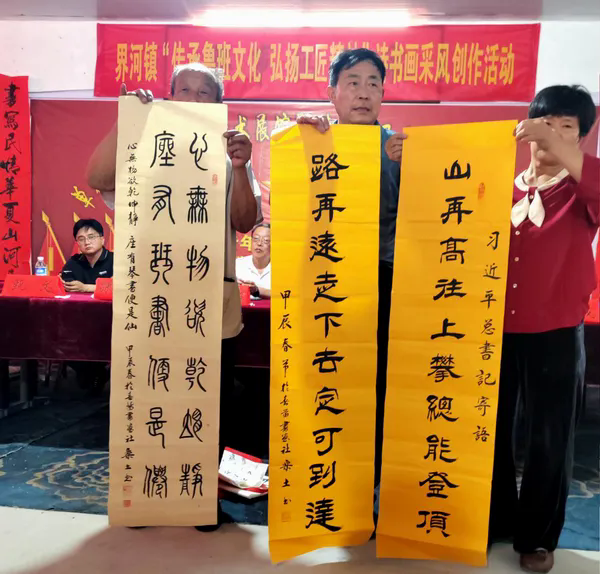 界河镇“传承鲁班文化 弘扬工匠
书画采风创作活动
術展
書寫民情華夏山河
心無物欲乾坤靜
座有琴書便是仙
心無物欲乾坤静 座有琴書便是仙 甲辰春於
习近平总書记寄語
山再高往上攀總能登頂
路再遠走下去定可到達
甲辰春